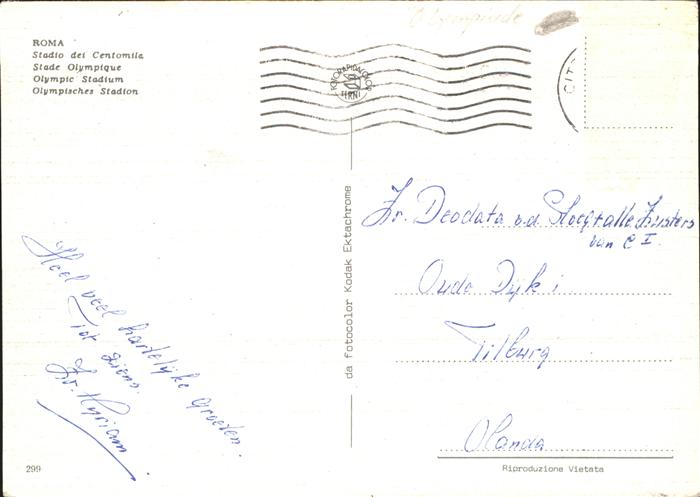 Olympiade
ROMA
Stadio dei Centomila
Stade Olympique
Olympic Stadium
Olympisches Stadion
FOTORAPIDACOLOR
TERNI
CITTA
da fotocolor Kodak Ektachrome
Zr. Deodata v.d. Zusters
van C I.
Oude Dijk 1
Tilburg
Olanda
Heel veel hartelijke groeten.
tot ziens.
Zr. Myriam
299
Riproduzione Vietata